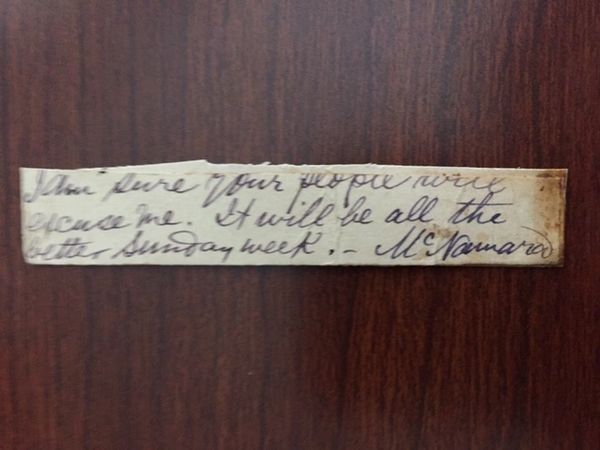 I am sure your people will
excuse me. It will be all the
better Sunday week. - McNamara